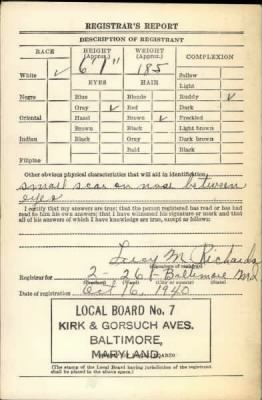 REGISTRAR'S REPORT
DESCRIPTION OF REGISTRANT
RACE HEIGHT (Approx.) WEIGHT (Approx.) COMPLEXION
6'1" 185
White ✓ EYES HAIR Sallow
Light
Negro Blue Blonde Ruddy ✓
Gray ✓ Red Dark
Oriental Hazel Brown ✓ Freckled
Brown Black Light brown
Indian Black Gray Dark brown
Bald Black
Filipino
Other obvious physical characteristics that will aid in identification
small scar on nose between
eyes
I certify that my answers are true; that the person registered has read or has had
read to him his own answers; that I have witnessed his signature or mark and that
all of his answers of which I have knowledge are true, except as follows:
Leroy M. Richards
(Signature of registrar)
Registrar for 2- 26 - Baltimore Md
(Precinct) (Ward) (City or county) (State)
Date of registration Oct 16, 1940
LOCAL BOARD No. 7
KIRK & GORSUCH AVES.
BALTIMORE,
MARYLAND
(The stamp of the Local Board having jurisdiction of the registrant
shall be placed in the above space.)